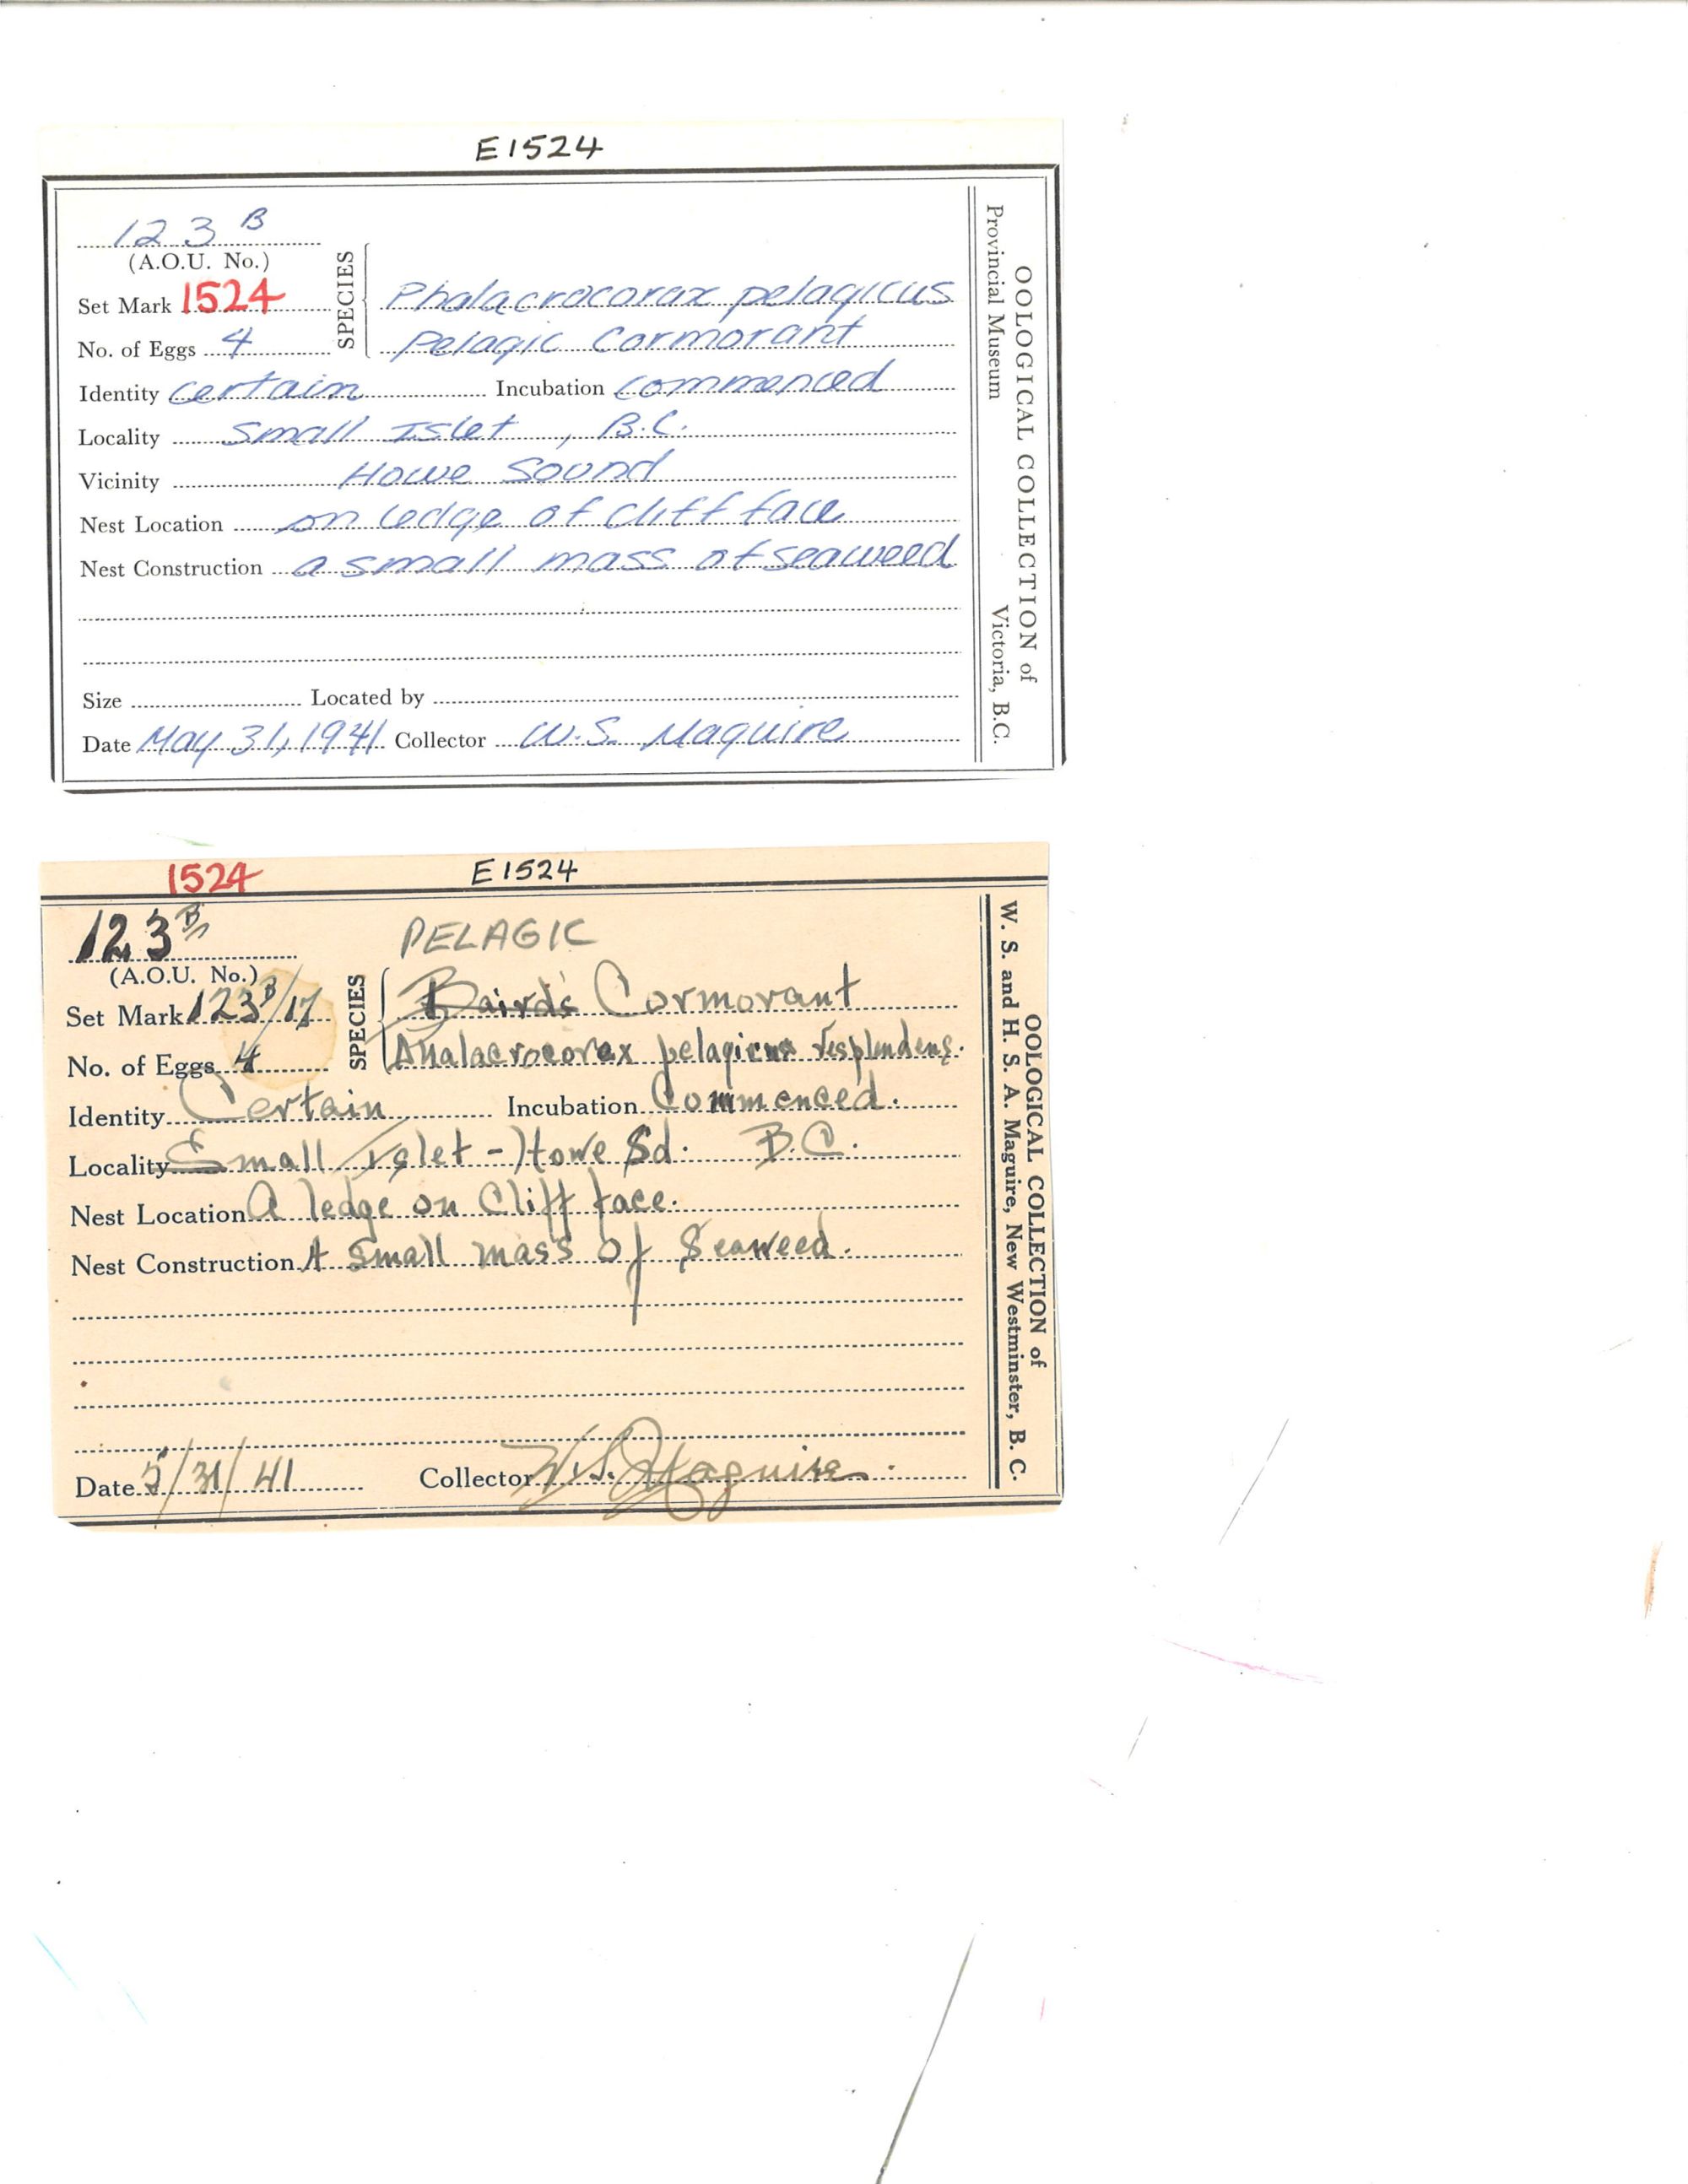 E1524
123 B
(A.O.U. No.)
Set Mark 1524
No. of Eggs 4
SPECIES
Phalacrocorax pelagicus
Pelagic Cormorant
Identity certain Incubation commenced
Locality Small Islet, B.C.
Vicinity Howe Sound
Nest Location on ledge of cliff face
Nest Construction a small mass of seaweed
Size Located by
Date May 31, 1941 Collector W.S. Maguire
OOLOGICAL COLLECTION of
Provincial Museum Victoria, B.C.
1524 E1524
123 B
(A.O.U. No.)
PELAGIC
Set Mark 123B/17
No. of Eggs 4
SPECIES
Baird's Cormorant
Phalacrocorax pelagicus resplendens.
Identity Certain Incubation Commenced.
Locality Small Islet - Howe Sd. B.C.
Nest Location A ledge on Cliff face.
Nest Construction A small mass of Seaweed.
Date 5/31/41 Collector W.S. Maguire.
OOLOGICAL COLLECTION of
W. S. and H. S. A. Maguire, New Westminster, B. C.